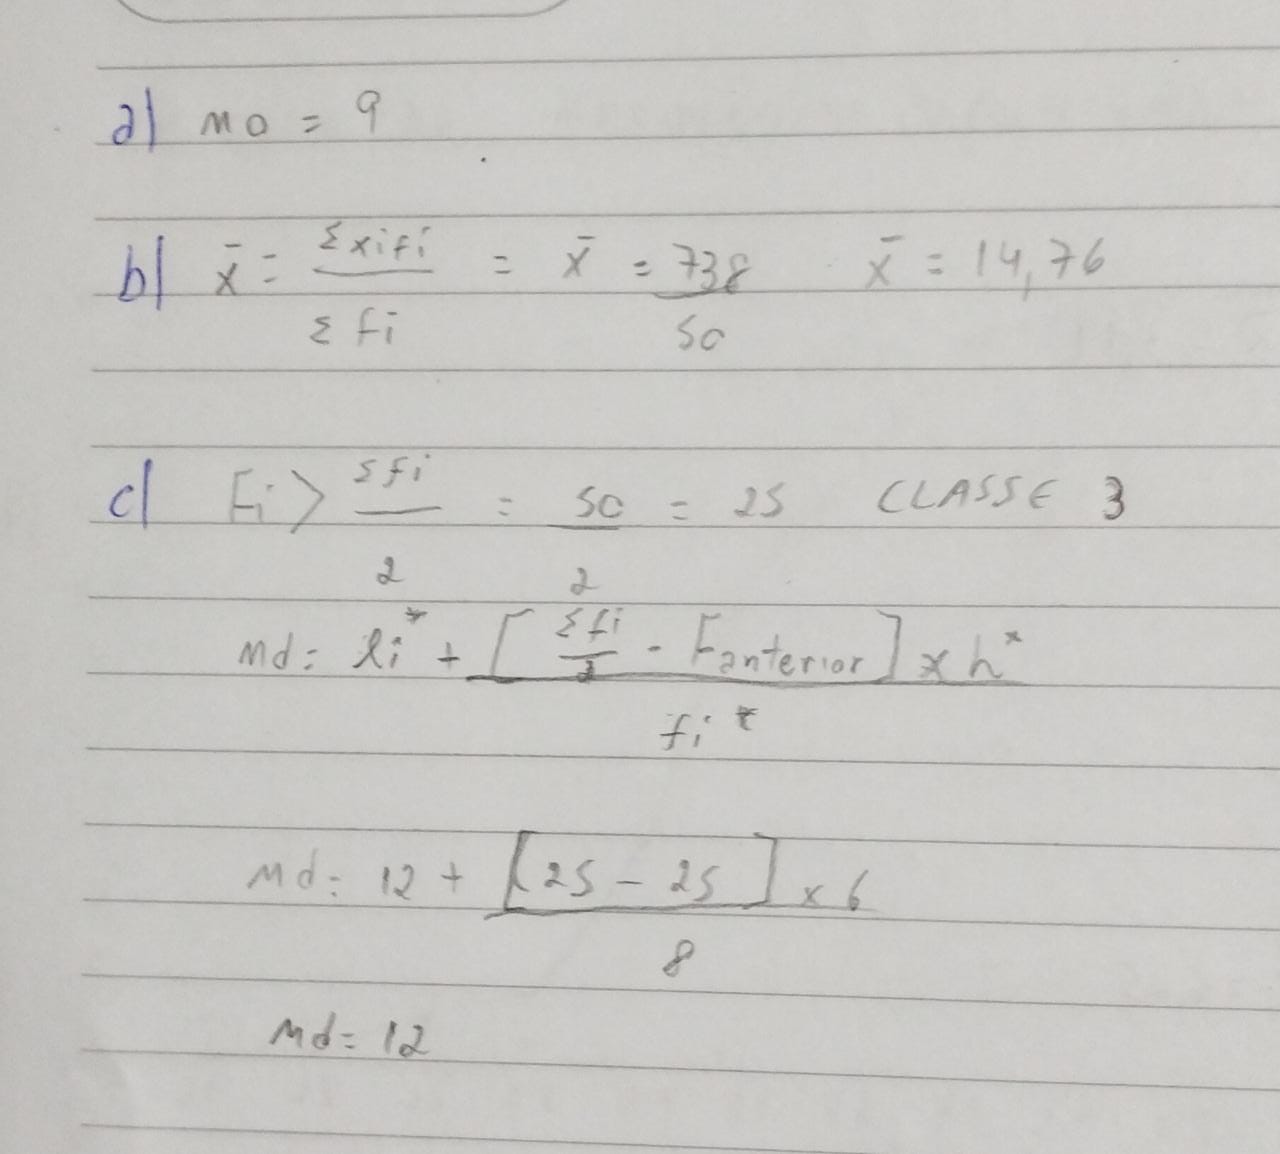 a) mo = 9
b) x̄ = Σxifi / Σfi = x̄ = 738 / 50 x̄ = 14,76
c) Fi > Σfi / 2 = 50 / 2 = 25 CLASSE 3
Md = li* + [Σfi / 2 - Fanterior] x h* / fi*
Md = 12 + [25 - 25] x 6 / 8
Md = 12